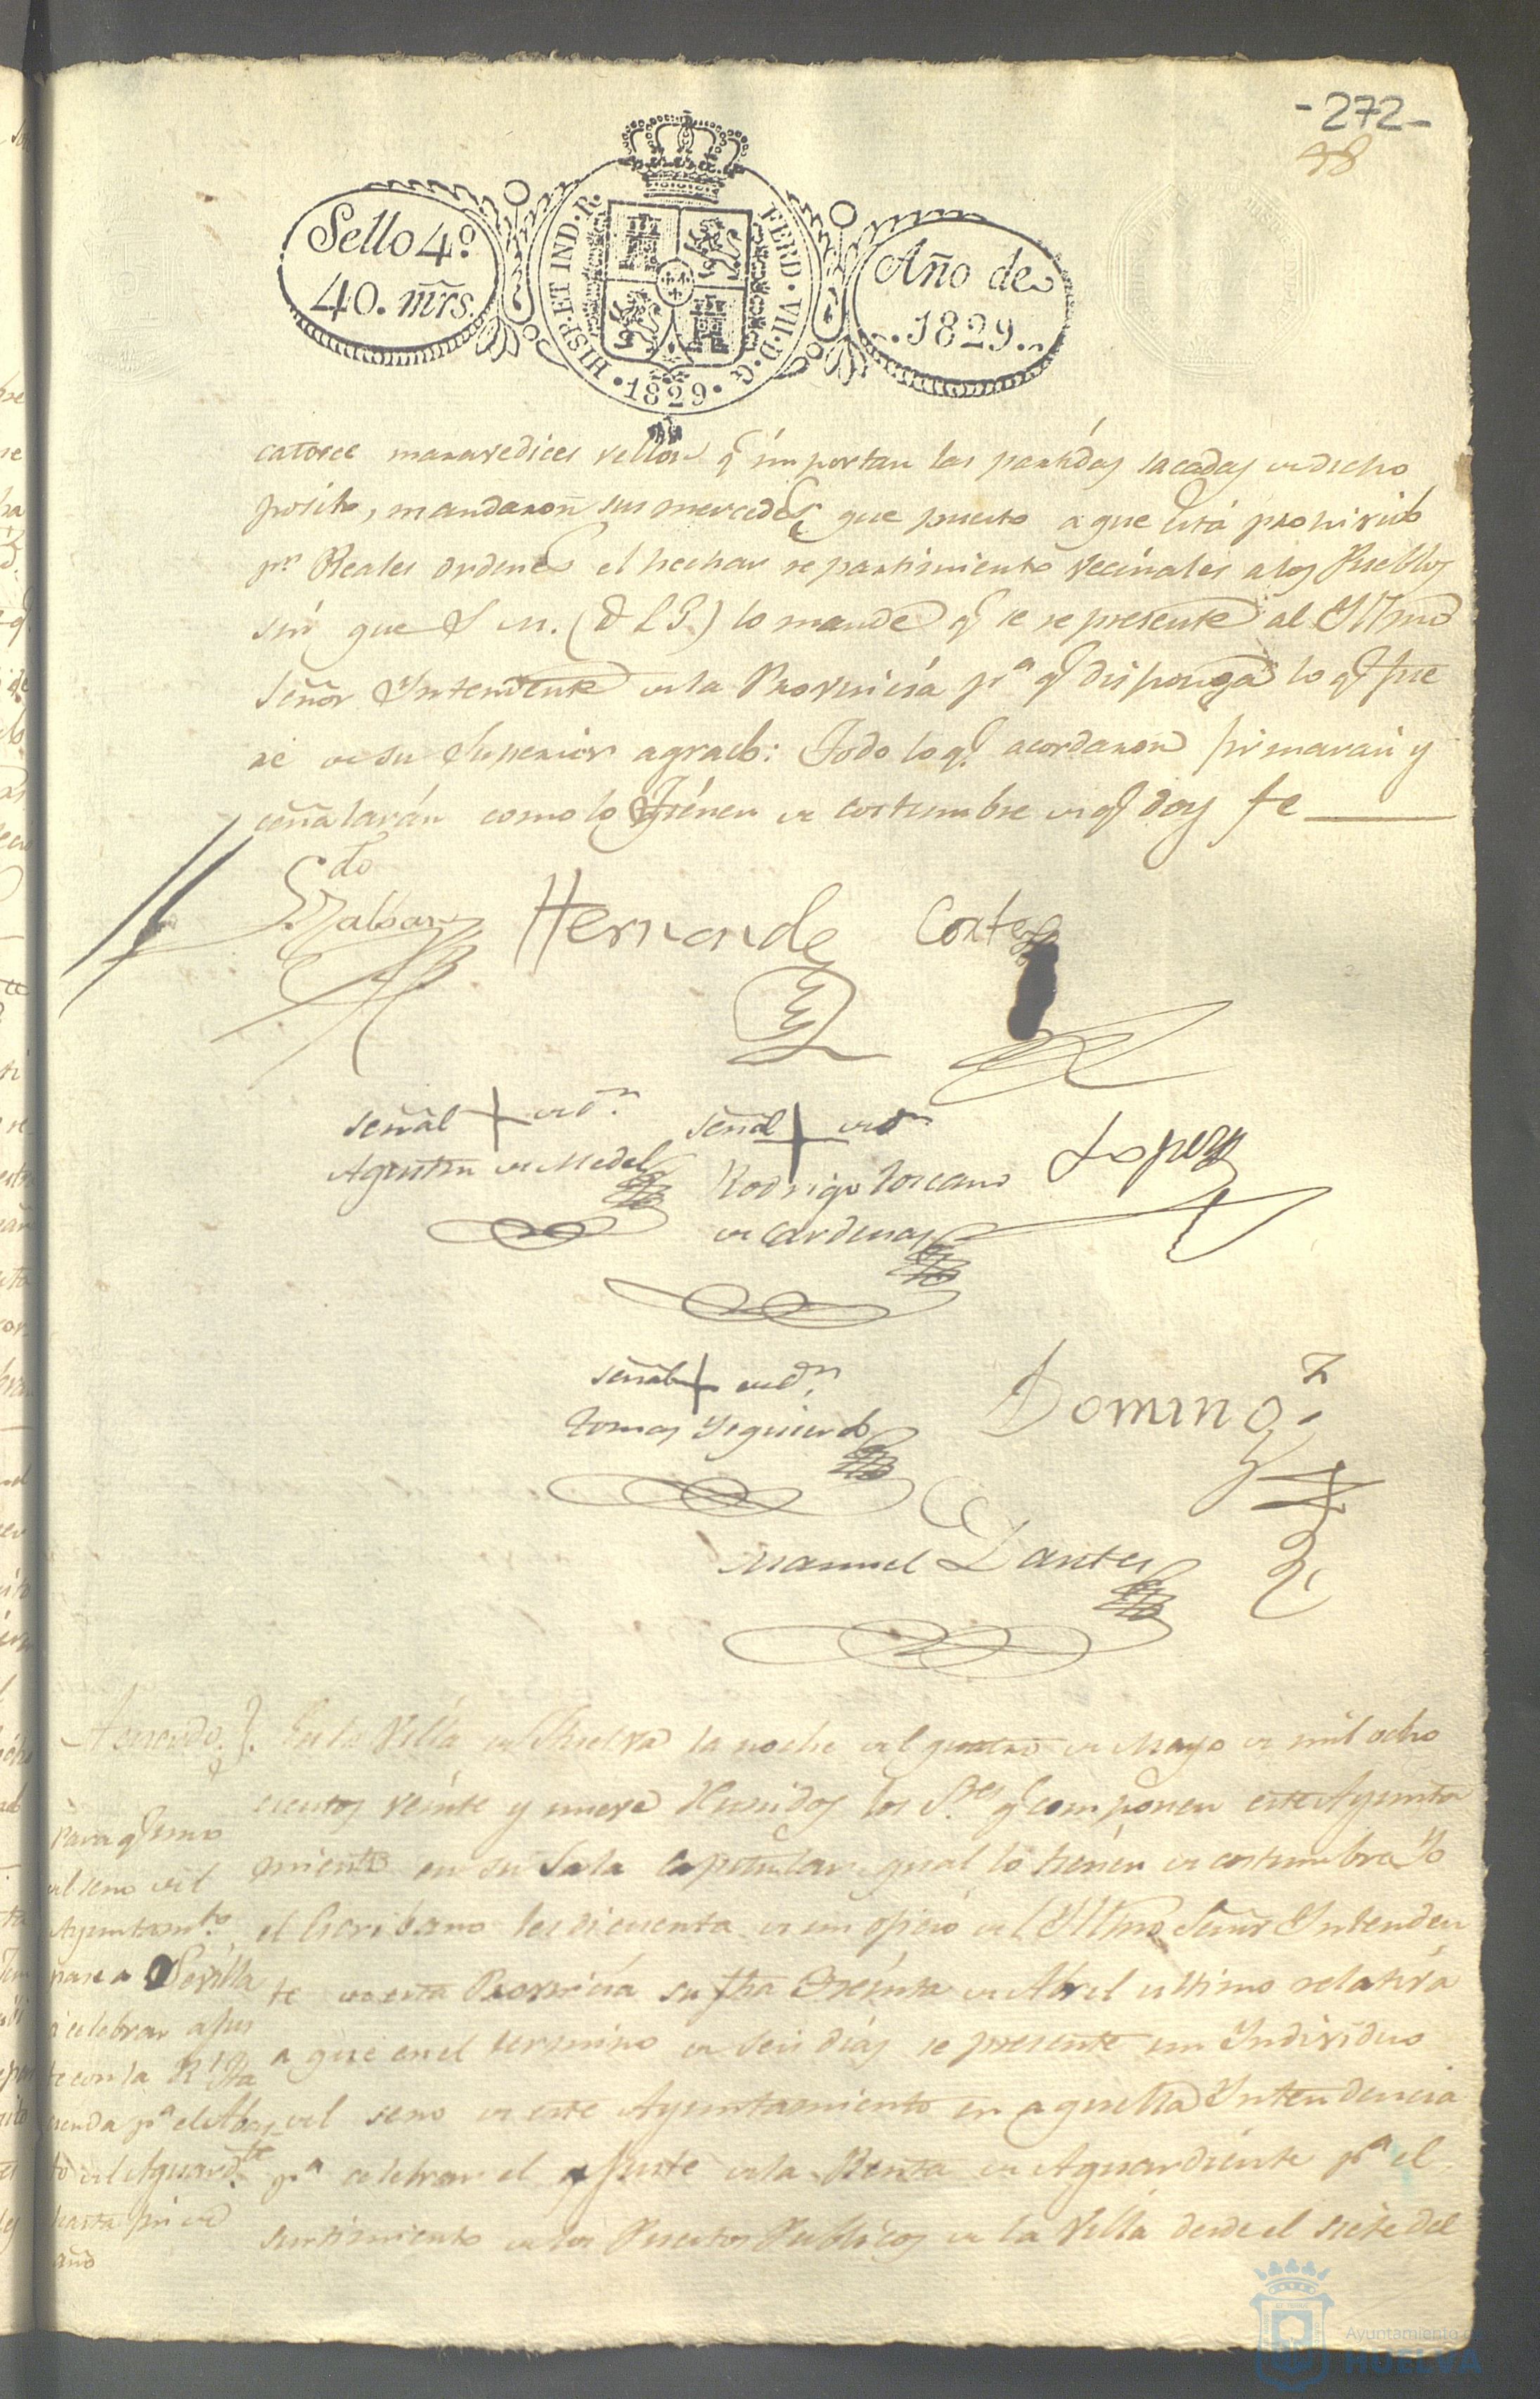 -272-
48
Sello 4º
40. mrs.
HISP. ET IND. R.
FERD. VII. D. G
• 1829 •
Año de
1829
catorce maravedices vellón q.e importan las partidas sacadas de dicho
posito, mandaron sus mercedes que puesto a que está prohivido
pr. Reales ordenes el hechar repartimiento vecinales a los Pueblos
sin que S. M. (D. L. G.) lo mande q.e se represente al Yltmo
Señor Yntendente de la Provincia pr.a q.e disponga lo q.e fue
re de su Superior agrado: Todo lo q.e acordaron firmaran y
señalarán como lo tienen de costumbre de q.e doy fe
Hernande
Cortes
señal + de D.n
Agustin de Medel
señal + de D.n
Rodrigo Toscano
de Cardenas
Lopez
señal + de D.n
Tomas Yzquierdo
Doming.z
Manuel Dantes
Acuerdo
En la Villa de Huelva la noche del quatro de Mayo de mil ocho
cientos veinte y nueve Reunidos los S.res q.e componen este Ayunta
miento en su Sala Capitular qual lo tienen de costumbre Yo
el Escribano les di cuenta de un oficio del Yltmo Señor Yntenden
te de esta Provincia su fha treinta de Abril ultimo relativa
a que en el termino de seis dias se presente un Yndividuo
del seno de este Ayuntamiento en aquella Yntendencia
pr.a celebrar el ajuste de la Renta de Aguardiente pr.a el
surtimiento de los Puestos Publicos de la Villa desde el siete del
Para q.e uno
del seno del
Ayuntam.to
pase a Sevilla
á celebrar ajus
te con la R.l Ha
cienda pr.a el Abas
to del Aguard.te
hasta fin de
año
Ayuntamiento de
HUELVA